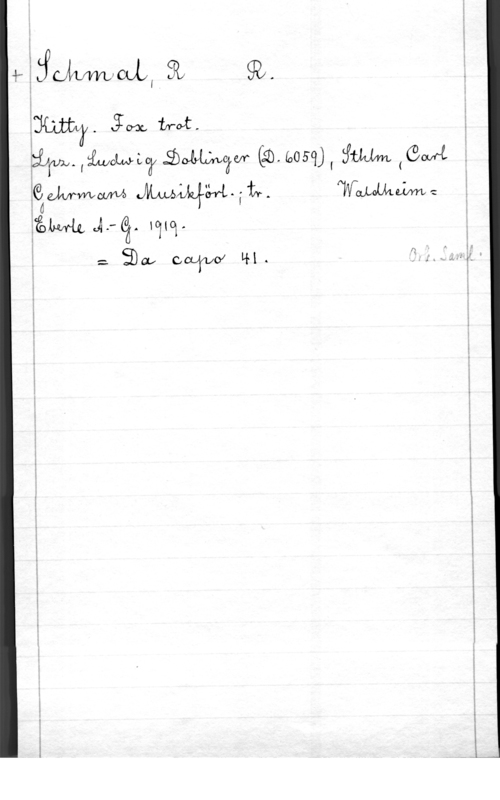 + Schmal, R R.
Kitty. Fox trot.
Lpz., Ludwig Doblinger (D. 6059), Sthlm, Carl
Gehrmans Musikförl.; tr. Waldheim=
Eberle A.-G. 1919.
= Da capo 41. Ork. Saml.